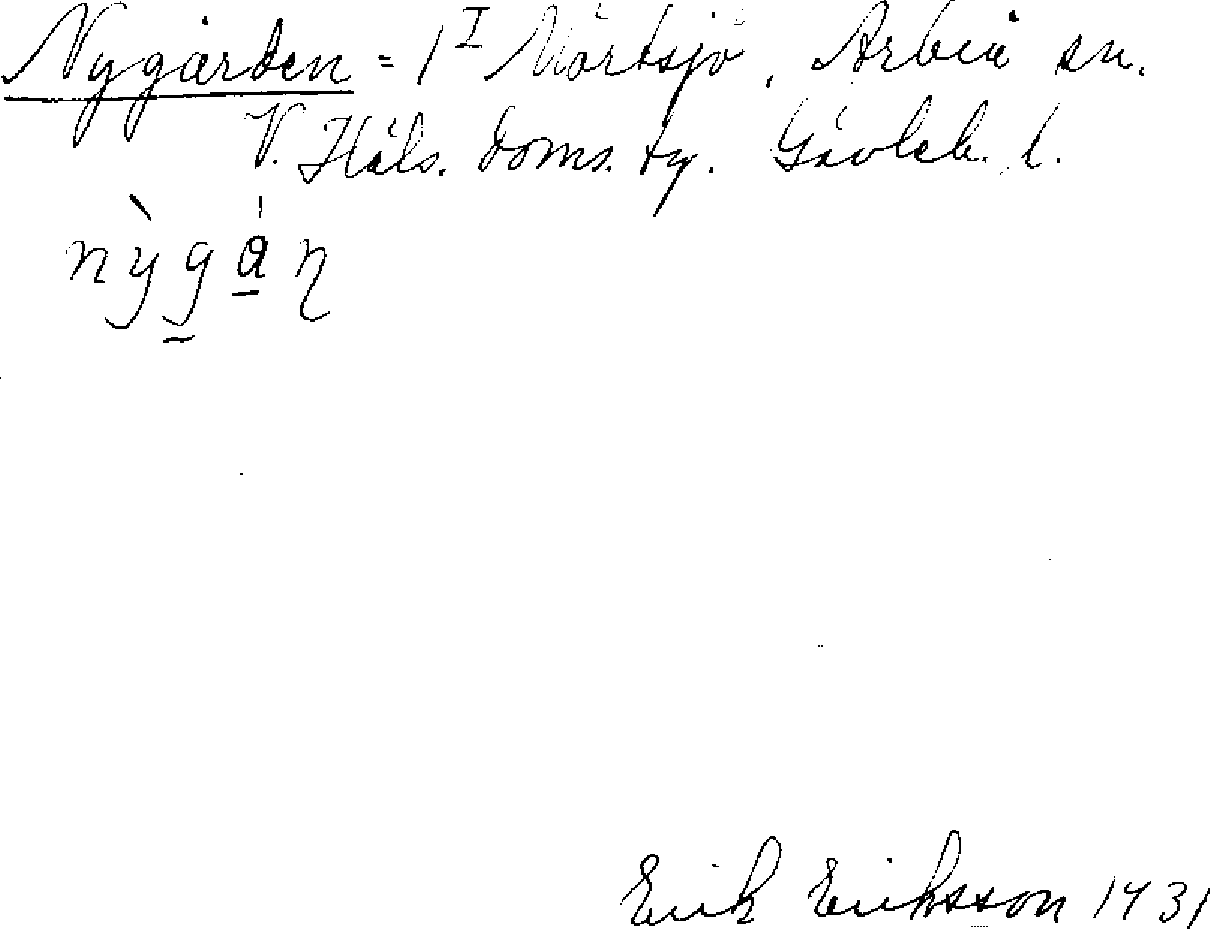 Nygården = 1^I Mörtsjö, Arbrå sn.
V. Häls. doms. tg. Gävleb. l.
nỳgån
Erik Eriksson 1931